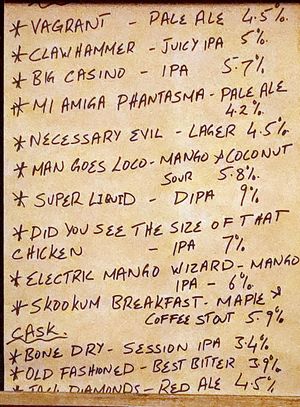 * VAGRANT - PALE ALE 4.5%
* CLAWHAMMER - JUICY IPA 5%
* BIG CASINO - IPA 5.7%
* MI AMIGA PHANTASMA - PALE ALE
4.2%
* NECESSARY EVIL - LAGER 4.5%
* MAN GOES LOCO - MANGO & COCONUT
SOUR 5.8%
* SUPER LIQUID - DIPA 9%
* DID YOU SEE THE SIZE OF THAT
CHICKEN - IPA 7%
* ELECTRIC MANGO WIZARD - MANGO
IPA - 6%
* SKOOKUM BREAKFAST - MAPLE &
COFFEE STOUT 5.9%
CASK.
* BONE DRY - SESSION IPA 3.4%
* OLD FASHIONED - BEST BITTER 3.9%
* DIAMONDS - RED ALE 4.5%